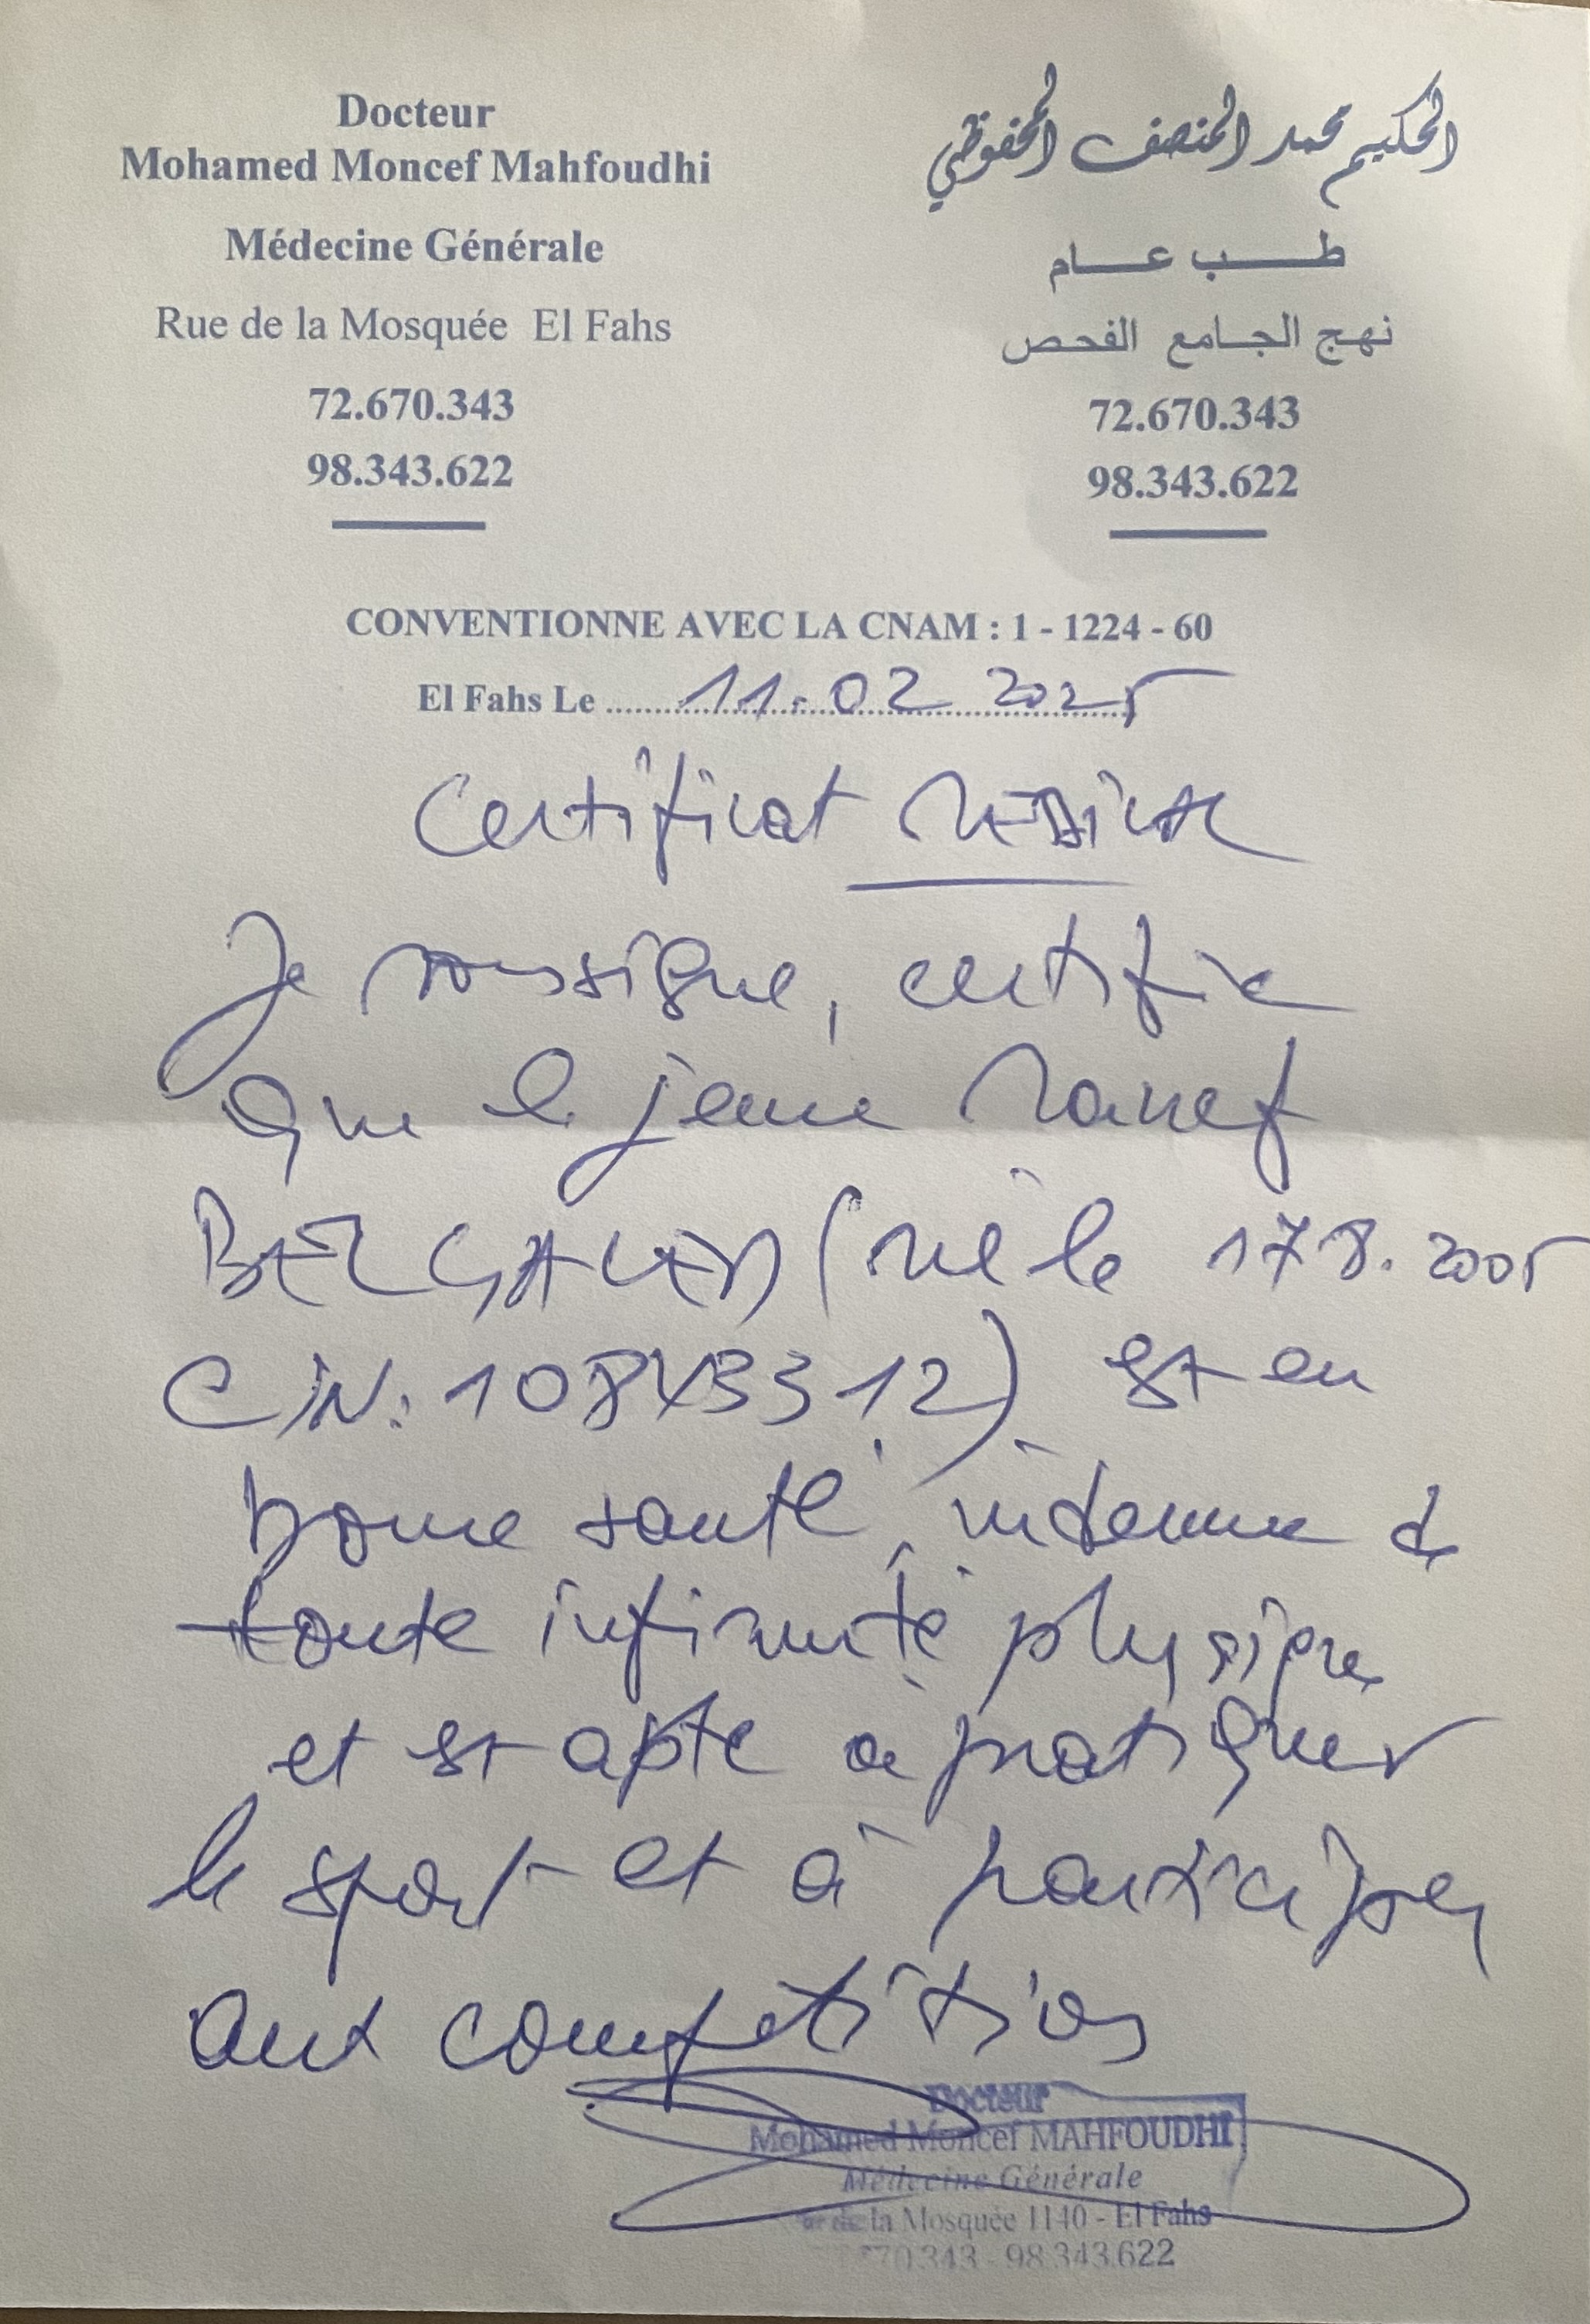 Docteur
Mohamed Moncef Mahfoudhi
Médecine Générale
Rue de la Mosquée El Fahs
72.670.343
98.343.622
الحكيم محمد المنصف المحفوظي
طب عام
نهج الجامع الفحص
72.670.343
98.343.622
CONVENTIONNE AVEC LA CNAM : 1 - 1224 - 60
El Fahs Le 11.02 2025
Certificat MEDICAL
Je soussigné, certifie
que le jeune
(né le 17 8. 2005
CIN: 10843312) est en
bonne santé, indemne de
toute infirmité physique
et est apte à pratiquer
le sport et à participer
aux compétitions
Docteur
Mohamed Moncef MAHFOUDHI
Médecine Générale
de la Mosquée 1140 - El Fahs
70.343 - 98.343.622